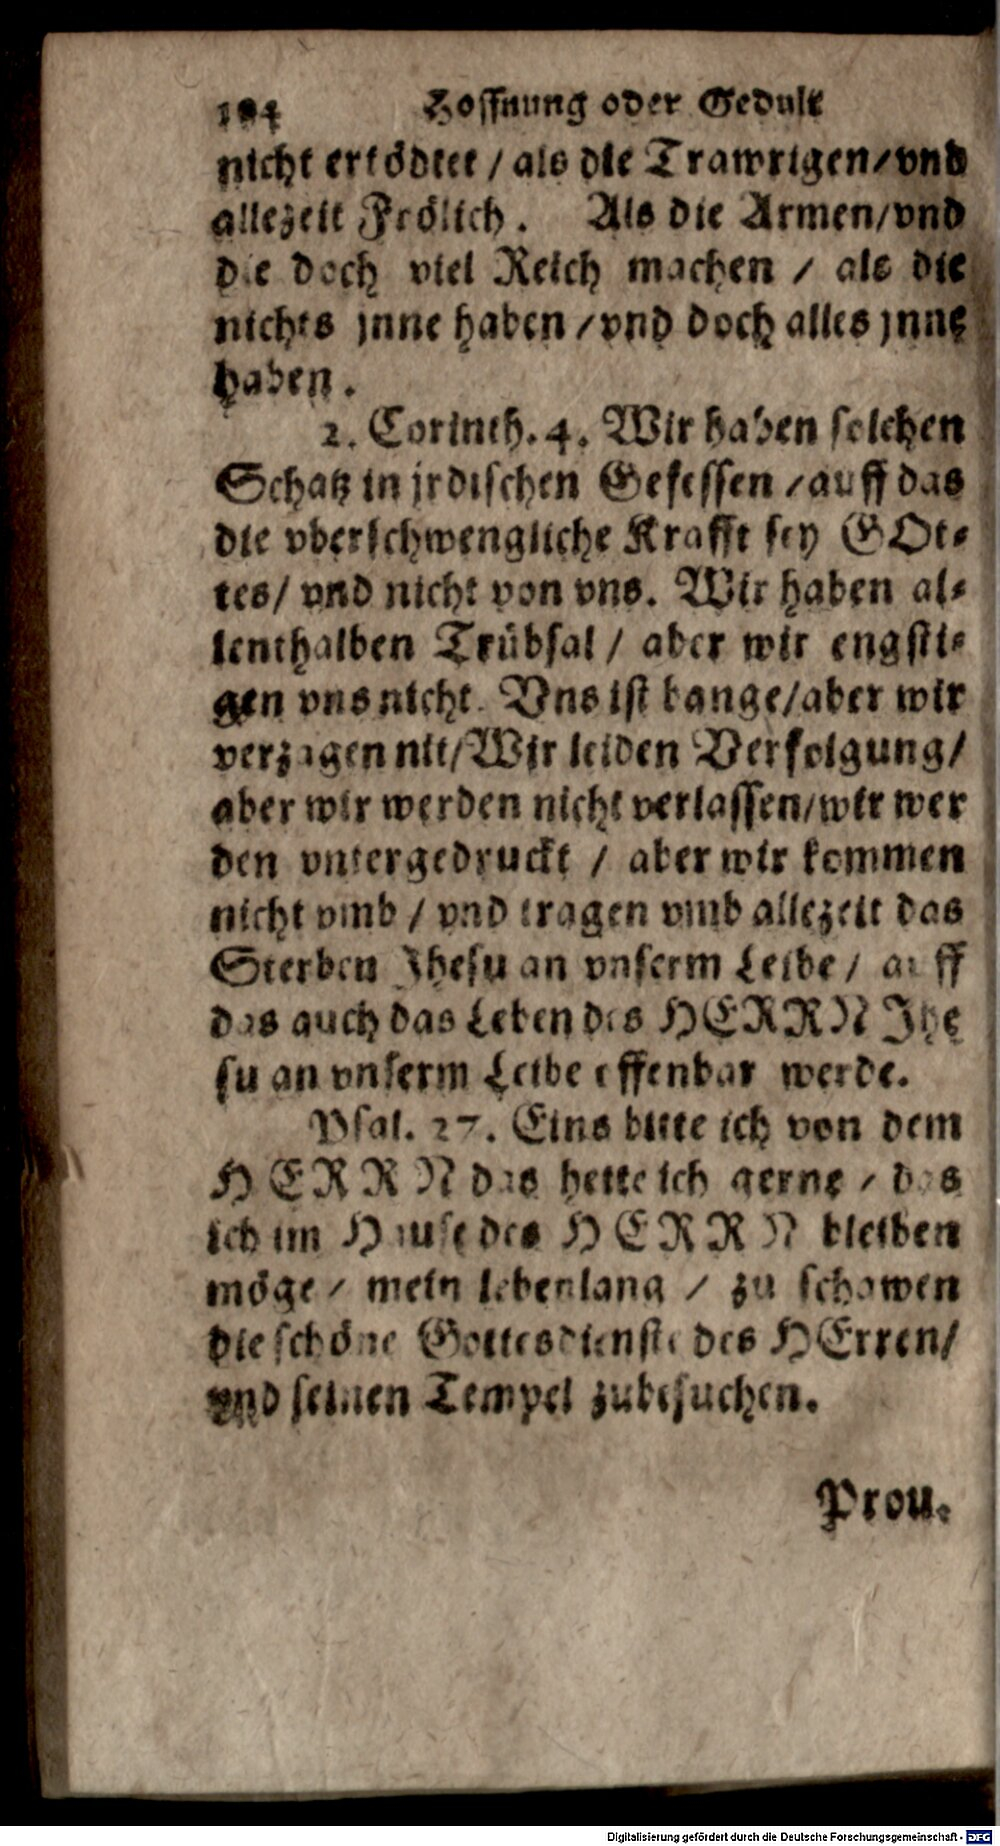 194 Hoffnung oder Gedult
nicht ertödtet / als die Trawrigen / vnd
allezeit Frölich. Als die Armen / vnd
die doch viel Reich machen / als die
nichts jnne haben / vnd doch alles jnne
haben.
2. Corinth. 4. Wir haben solchen
Schatz in jrdischen Gefessen / auff das
die vberschwengliche Krafft sey GOt⸗
tes / vnd nicht von vns. Wir haben al⸗
lenthalben Trübsal / aber wir engsti⸗
gen vns nicht. Vns ist bange / aber wir
verzagen nit / Wir leiden Verfolgung /
aber wir werden nicht verlassen / wir wer
den vntergedruckt / aber wir kommen
nicht vmb / vnd tragen vmb allezeit das
Sterben Jhesu an vnserm Leibe / auff
das auch das Leben des HERRN Jhe
su an vnserm Leibe offenbar werde.
Psal. 27. Eins bitte ich von dem
HERRN das hette ich gerne / das
ich im Hause des HERRN bleiben
möge / mein lebenlang / zu schawen
die schöne Gottesdienste des HErren /
vnd seinen Tempel zubesuchen.
Prou.
Digitalisierung gefördert durch die Deutsche Forschungsgemeinschaft - DFG